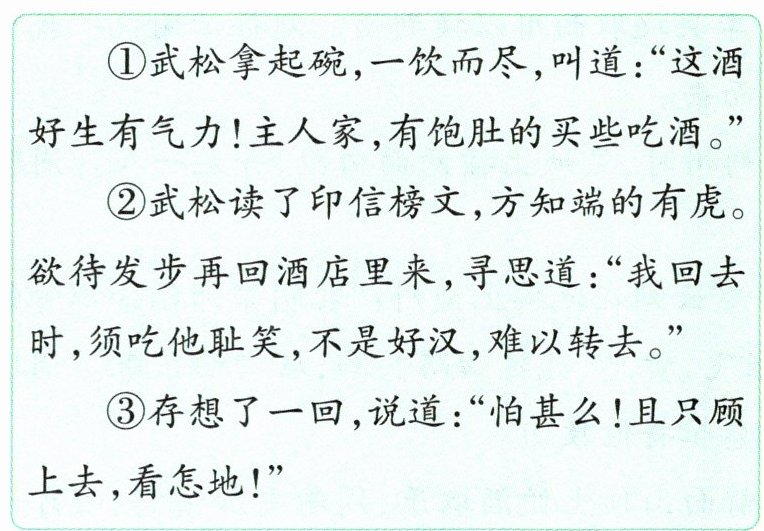 ①武松拿起碗,一饮而尽,叫道:“这酒
好生有气力!主人家,有饱肚的买些吃酒。”
②武松读了印信榜文,方知端的有虎。
欲待发步再回酒店里来,寻思道:“我回去
时,须吃他耻笑,不是好汉,难以转去。”
③存想了一回,说道:“怕甚么!且只顾
上去,看怎地!”